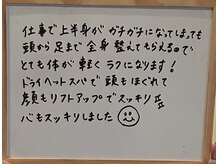 仕事で上半身がガチガチになってしまっても
頭から足まで全身整えてもらえるので
とても体が軽くラクになります!
ドライヘッドスパで頭もほぐれて
顔もリフトアップでスッキリ
心もスッキリしました